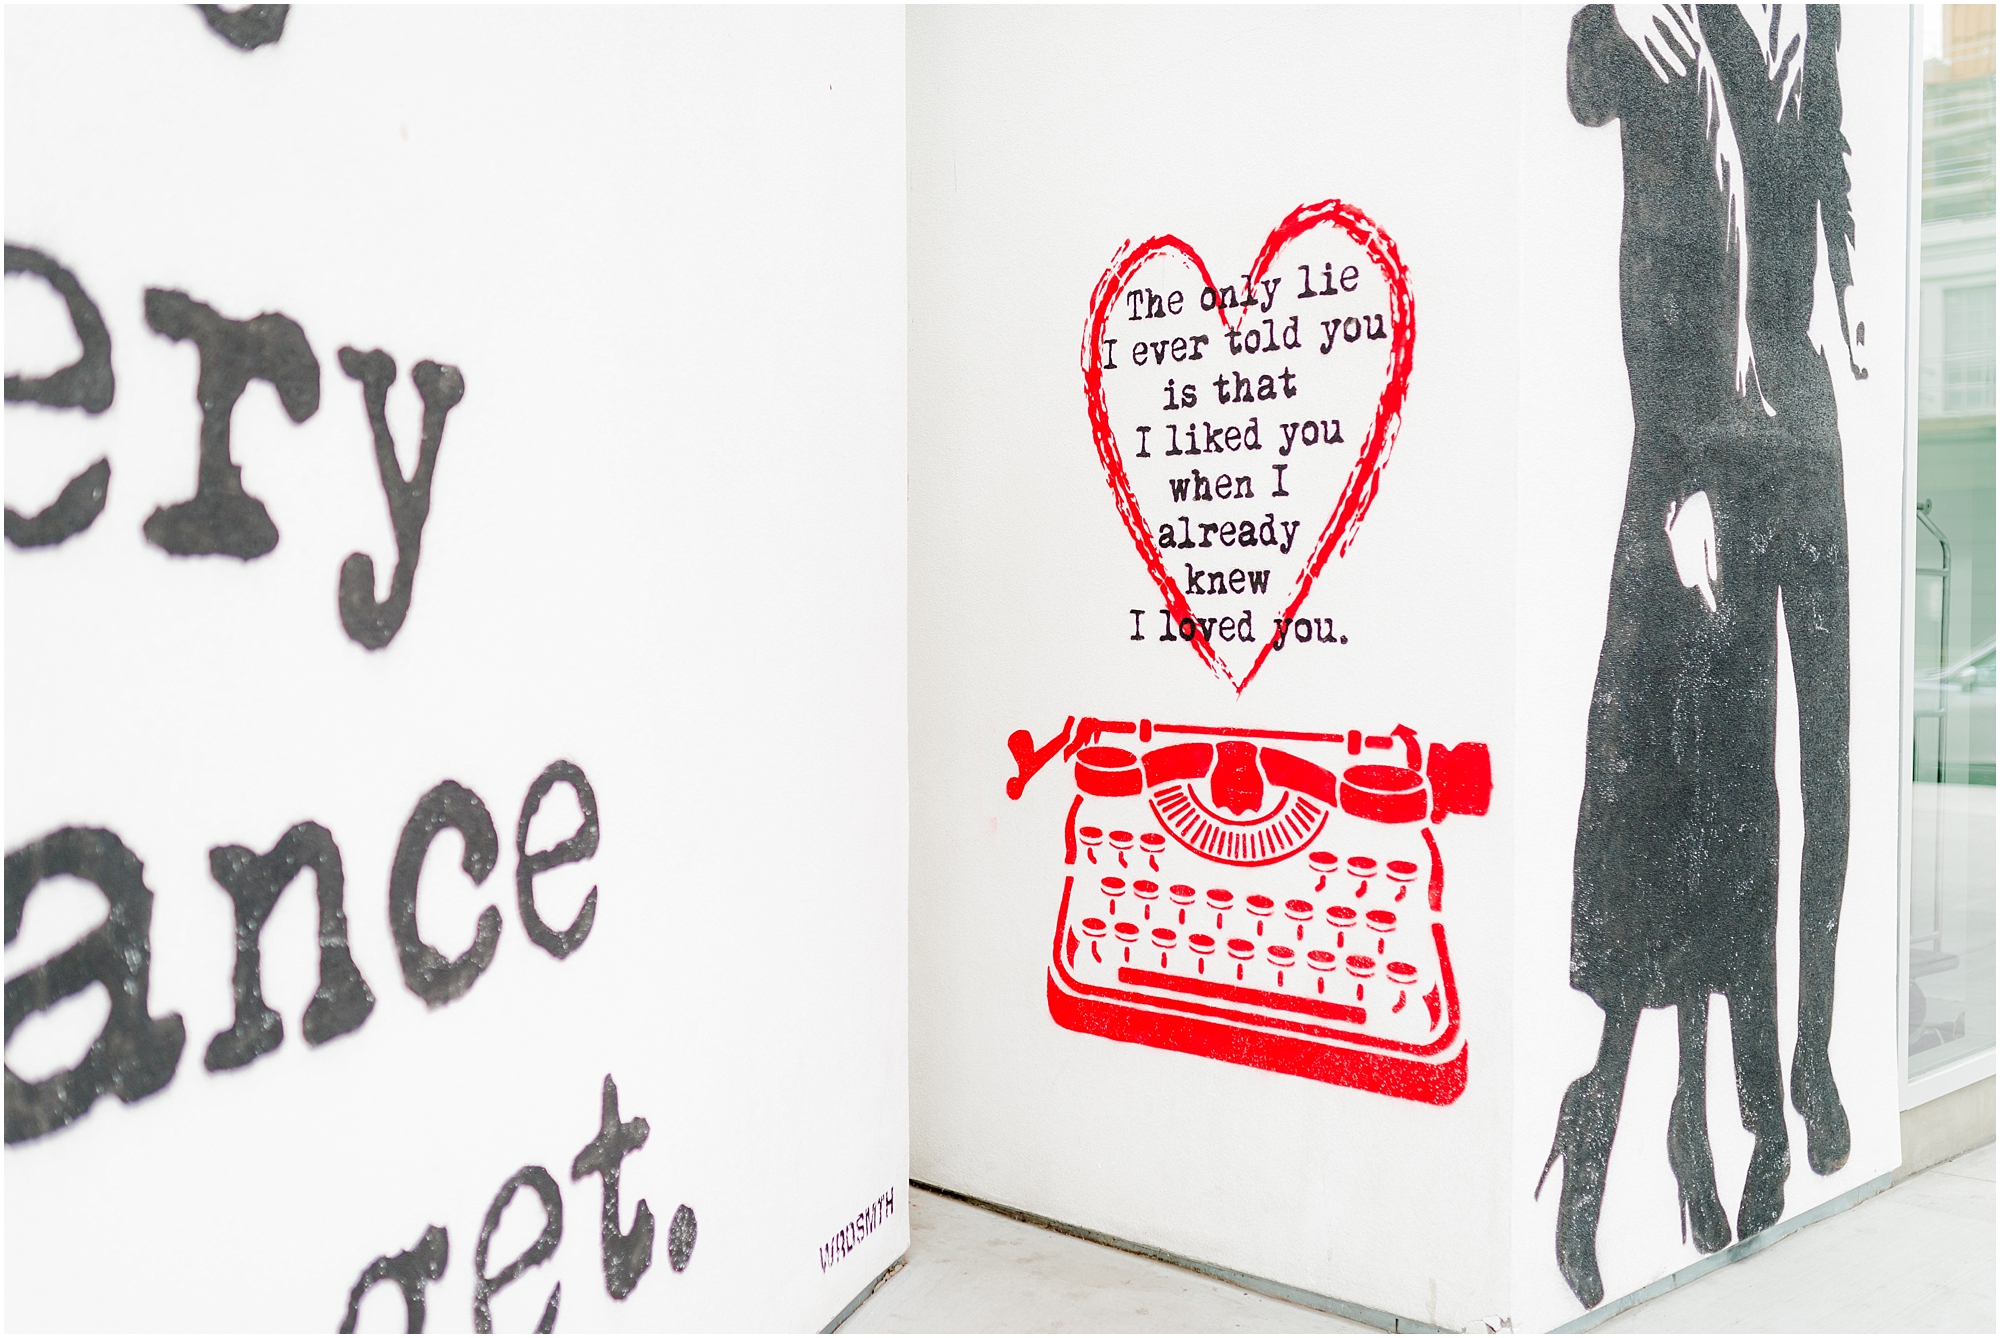 ery
ance
get.
WRDSMTH
The only lie
I ever told you
is that
I liked you
when I
already
knew
I loved you.